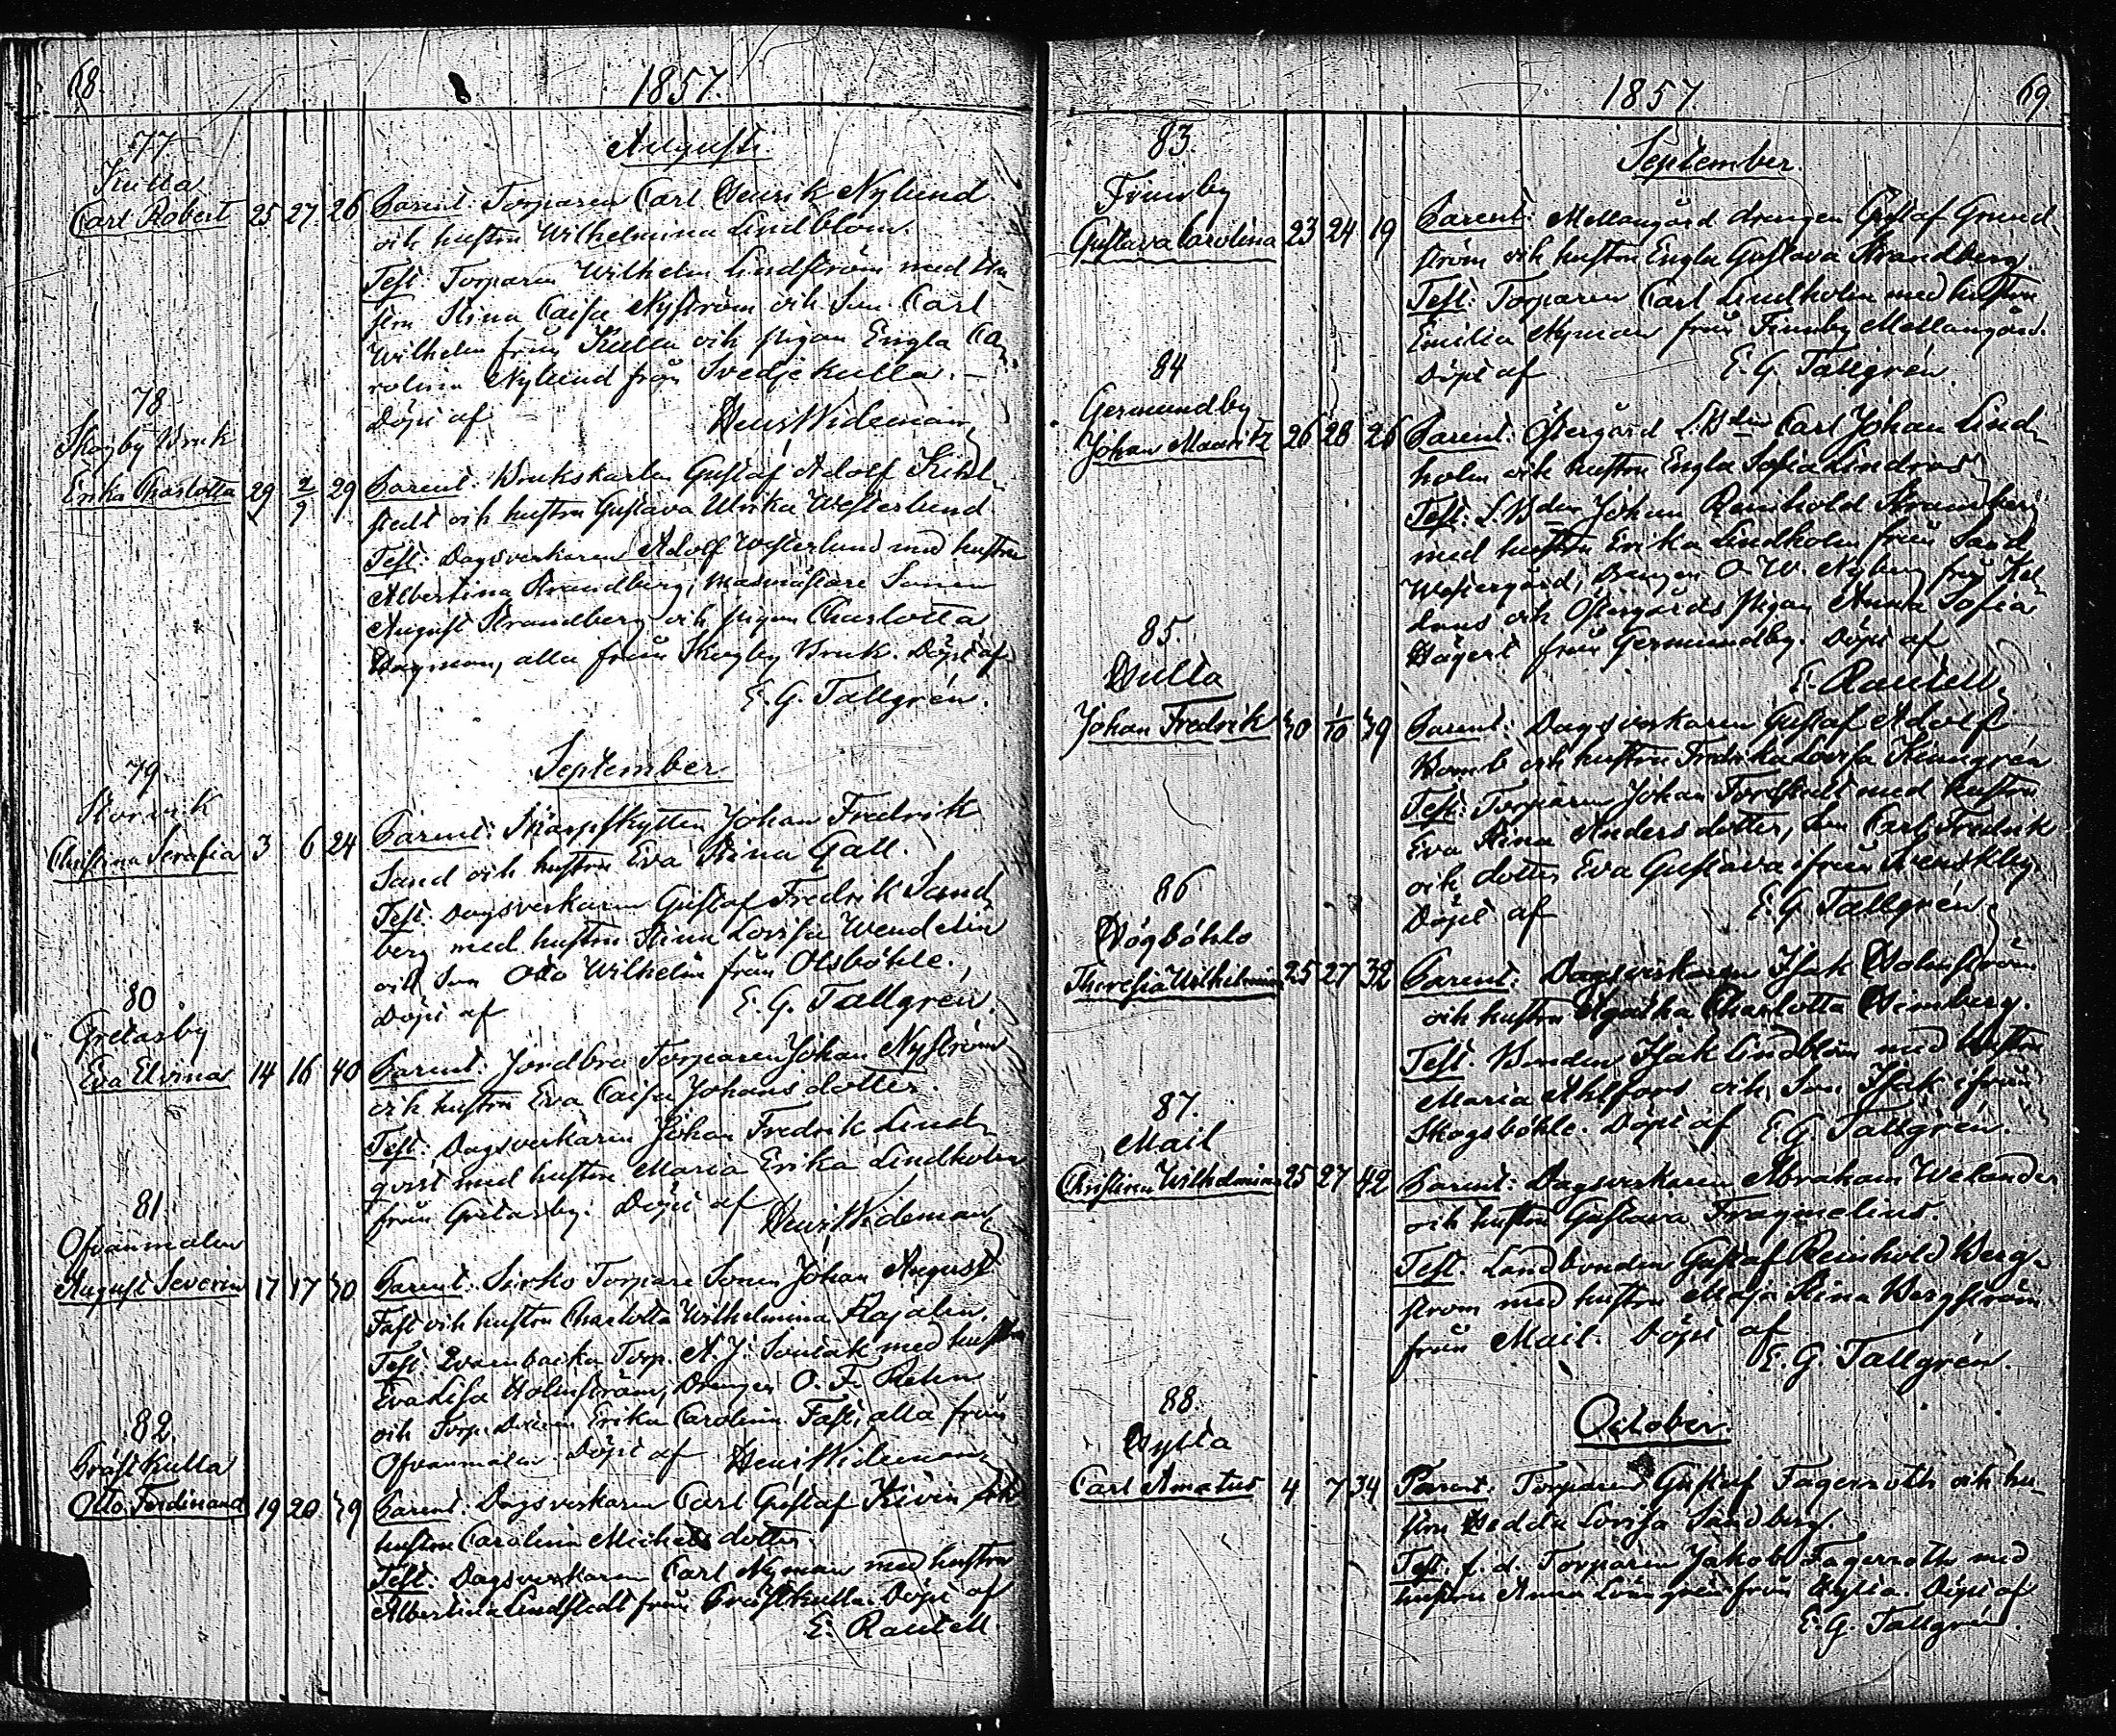 68.
1857.
Augusti.
77
Kulla
Carl Robert 25 27. 26
Parent: Torparen Carl Henrik Nylund
och hustru Wilhelmina Lindblom.
Test: Torparen Wilhelm Lindström med Hu-
stru Stina Caisa Nyström och Son Carl
Wilhelm från Kulla och pigan Engla Ca-
rolina Nylund från Svedjekulla. —
Döpt af Henr Wideman
78
Skogby Bruk
Erika Charlotta 29 2/9 29
Parent: Brukskarlen Gustaf Adolf
stedt och hustru Gustava Ulrika Westerlund
Test: Dagsverkaren Adolf Westerlund med hustru
Albertina Strandberg, Masmästare Sonen
August Strandberg och pigan Charlotta
Hagman, alla från Skogby Bruk. Döpt af
E. G. Tallgrén.
September
79
Storvik
Christina Serafia 3 6 24
Parent: Skarpskytten Johan Fredrik
Sand och hustru Eva Stina Gall.
Test: Dagsverkaren Gustaf Fredrik Sand-
berg med hustru Stina Lovisa Wendelin
och Son Otto Wilhelm från Olsböhle.
Döpt af E. G. Tallgrén.
80
Gretarby
Eva Elvina 14 16 40
Parent: Jordbro Torparen Johan Nyström
och hustru Eva Caisa Johansdotter.
Test: Dagsverkaren Johan Fredrik Lind-
qvist med hustru Maria Erika Lindholm
från Gretarby. Döpt af Henr Wideman
81
Ofvanmalm
August Severin 17 17 30
Parent: Sirko Torpare Sonen Johan August
Fast och hustru Charlotta Wilhelmina
Test: Qvarnbacka Torp. A. J. med hustru
Eva Lisa Holmström, Drengen O. F. Rehn
och Torp. Erika Carolina Fast, alla från
Ofvanmalm. Döpt af Henr Wideman
82.
Prästkulla
Otto Ferdinand 19 20 39
Parent: Dagsverkaren Carl Gustaf Kivin och
hustru Carolina Michelsdotter
Test: Dagsverkaren Carl Nyman med hustru
Albertina Lindstedt från Prästkulla. Döpt af
E. Rautell.
1857.
69.
September.
83.
Finnby
Gustava Carolina 23 24 19
Parent: Mellangård drengen Gustaf Grund-
ström och hustru Engla Gustava Strandberg.
Test: Torparen Carl Lindholm med hustru
Emilia Nyman från Finnby Mellangård.
Döpt af E. G. Tallgrén.
84
Germundby
Johan Mauritz 26 28 26
Parent: Östergård L.Bden Carl Johan Lind-
holm och hustru Engla Sofia Lindroos
Test: L.Bden Johan Reinhold Strandberg
med hustru Erika Lindholm från Sand
Westergård, Drengen O. W. Nyberg från
och Östergårds Pigan Anna Sofia
Hägert från Germundby. Döpt af
E. Rautell
85.
Hulta
Johan Fredrik 30 1/10 39
Parent: Dagsverkaren Gustaf Adolf
Bomb och hustru Fredrika Lovisa
Test: Torparen Johan Forsstedt med hustru
Eva Stina Andersdotter, Son Carl Fredrik
och dotter Eva Gustava ifrån Svenskby.
Döpt af E. G. Tallgrén.
86
Högböhle
Theresia Wilhelmina 25 27 32
Parent: Dagsverkaren Isak Holmström
och hustru Agatha Charlotta Himberg.
Test. Bonden Isak Lindblom med Hustru
Maria Ahlfors och Son Isak ifrån
Skogsböhle. Döpt af E. G. Tallgrén.
87.
Mail
Christina Wilhelmina 25 27 42
Parent: Dagsverkaren Abraham Welander
och hustru Gustava Fragmelius.
Test. Landbonden Gustaf Reinhold Berg-
ström med hustru Maja Stina Bergström
från Mail. Döpt af
E. G. Tallgrén.
October.
88.
Hylta
Carl Amatus 4 7 34
Parent: Torparen Gustaf Fagerroth och hu-
stru Hedda Lovisa Sandberg.
Test. f. d. Torparen Jakob Fagerroth med
hustru Anna Lovisa från Hylta. Döpt af
E. G. Tallgrén.